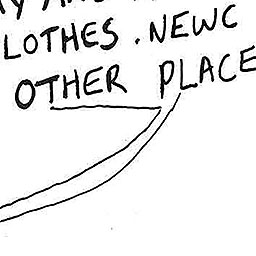 LOTHES . NEWC
OTHER PLACE